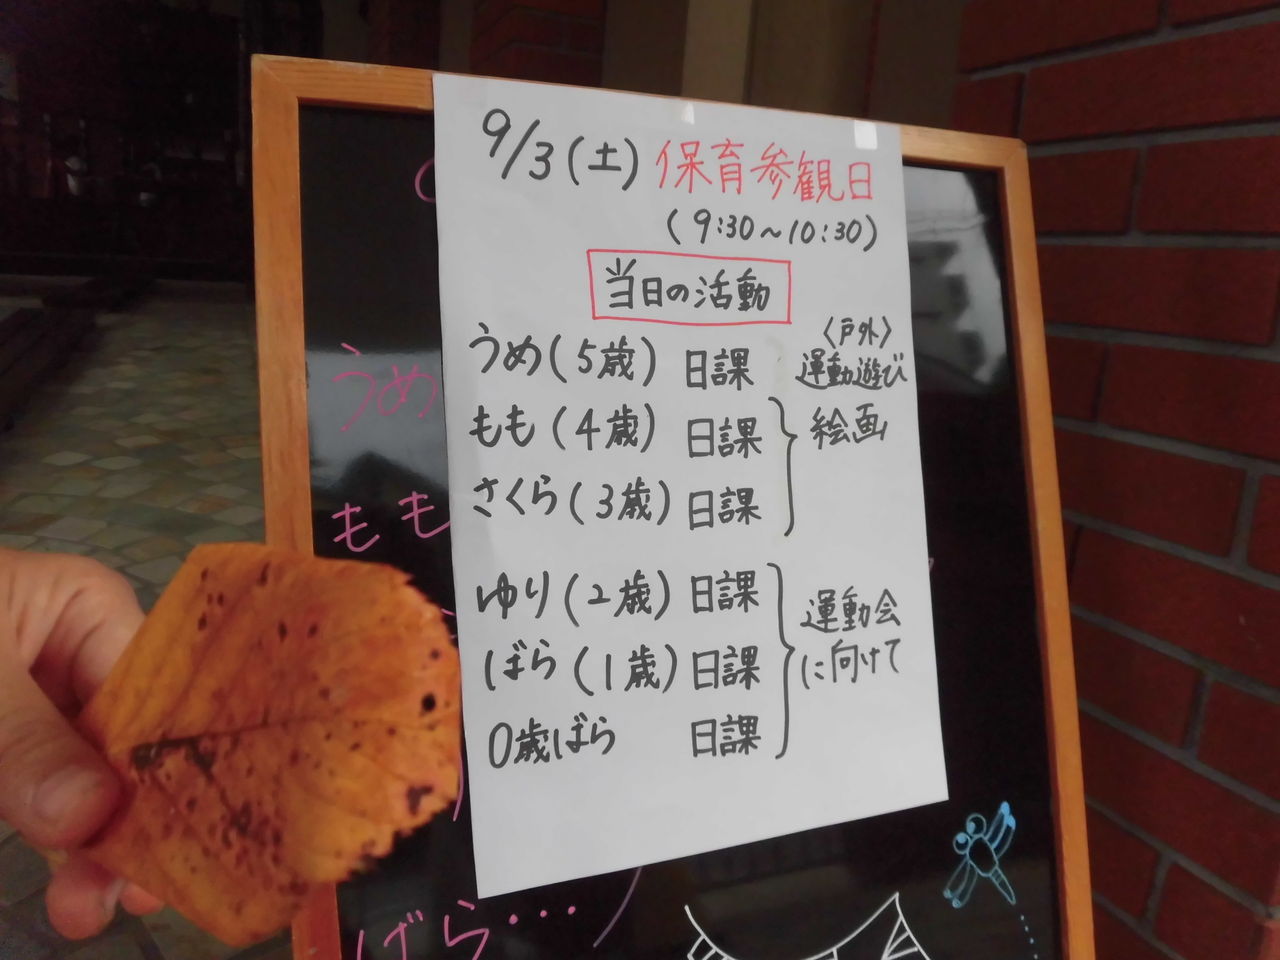 9/3(土) 保育参観日
(9:30~10:30)
当日の活動
うめ(5歳) 日課 〈戸外〉運動遊び
もも(4歳) 日課
さくら(3歳) 日課
絵画
ゆり(2歳) 日課
ばら(1歳) 日課
0歳ばら 日課
運動会
に向けて
うめ
もも
ばら・・・